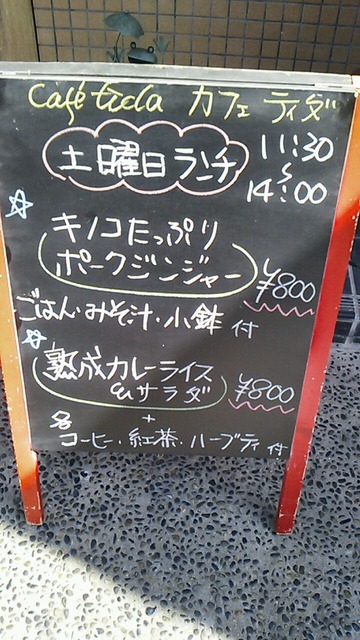 Café tida カフェ ティダ
土曜日ランチ 11:30
〜
14:00
☆ キノコたっぷり
ポークジンジャー ¥800
ごはん・みそ汁・小鉢 付
☆ 熟成カレーライス
&サラダ ¥800
各 +
コーヒー・紅茶・ハーブティ付